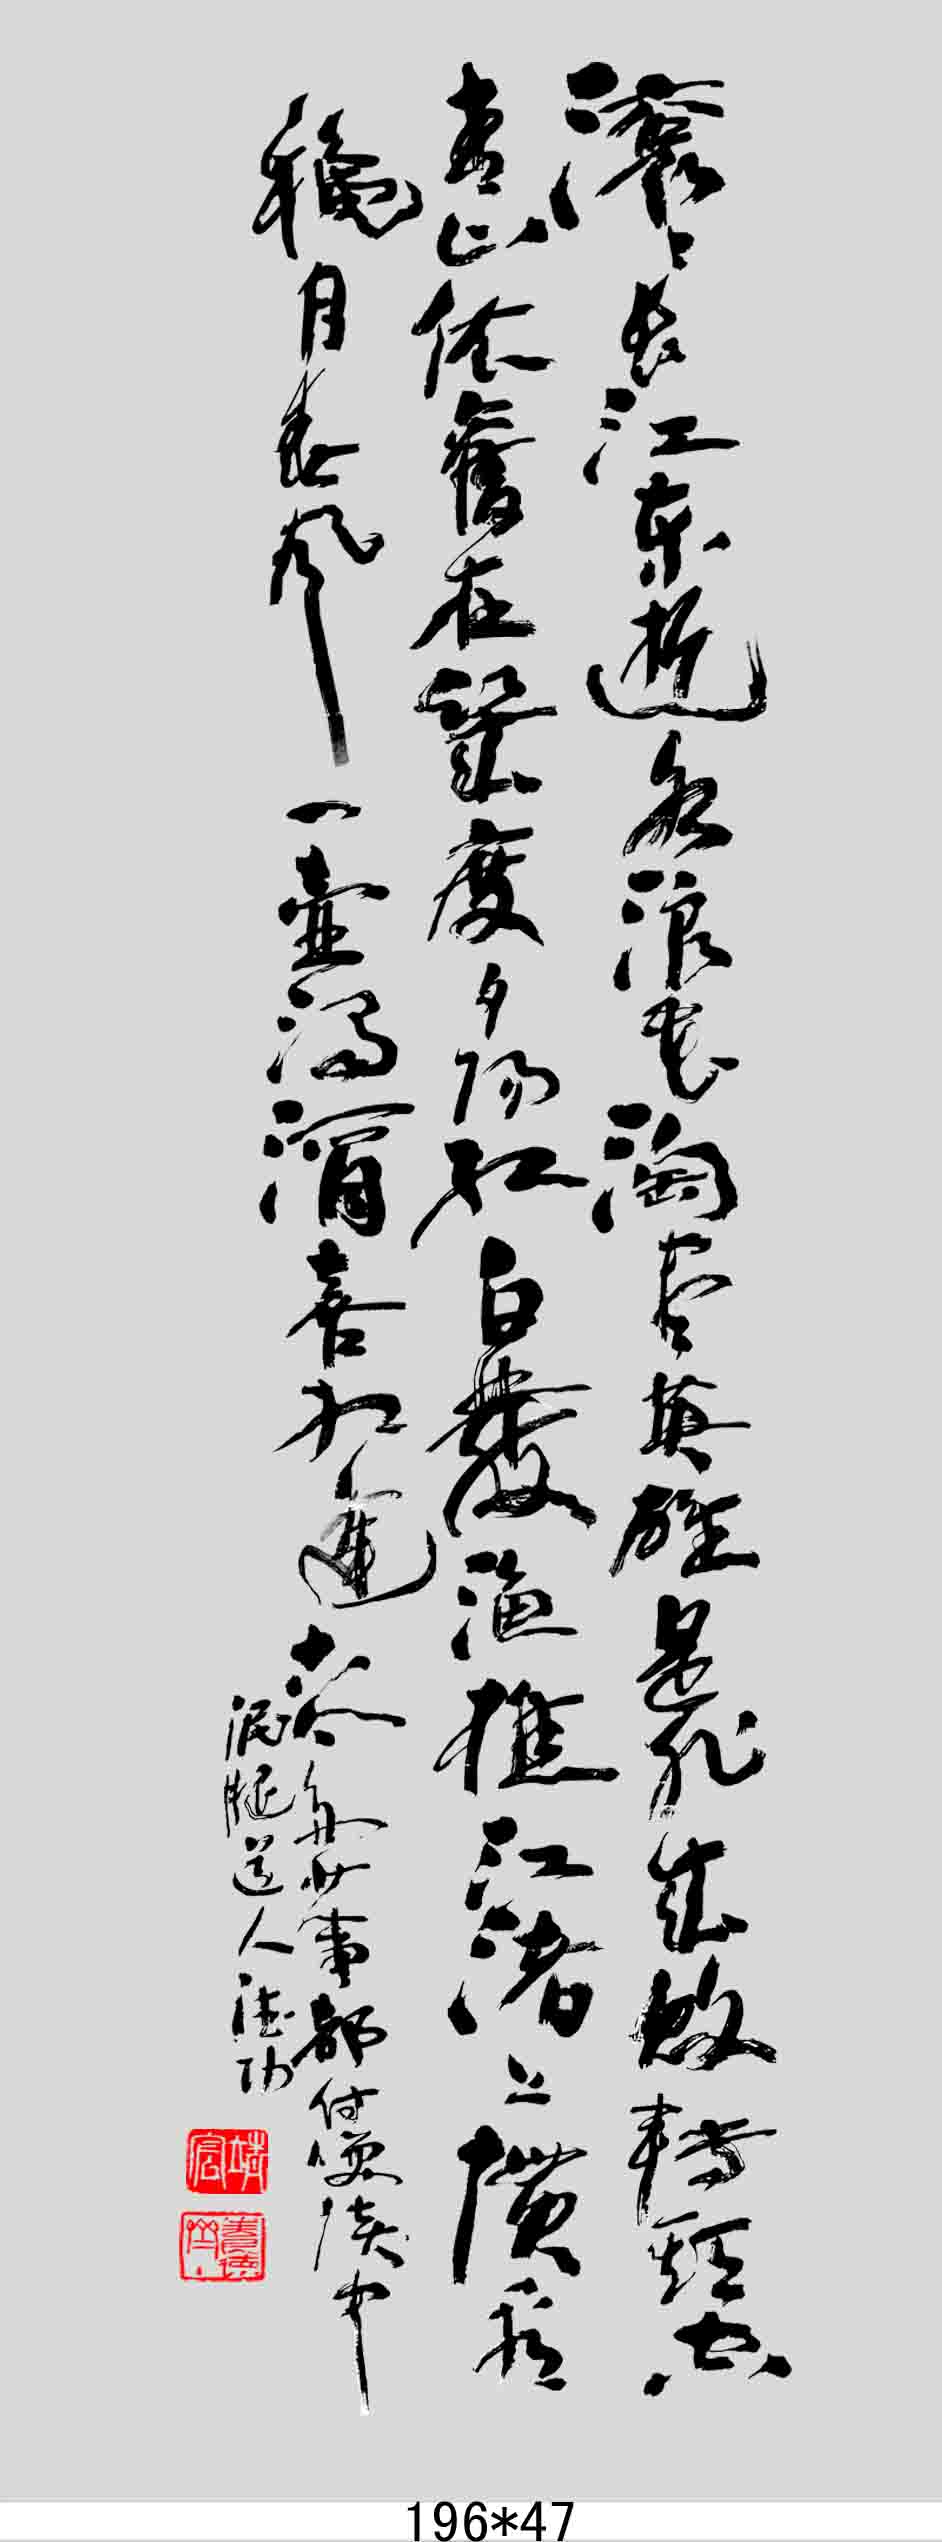 滚滚长江东逝水浪花淘尽英雄是非成败轉頭空
青山依舊在幾度夕阳红白發渔樵江渚上慣看
穐月春风一壺濁酒喜相逢古今多少事都付笑谈中
泥腿道人德功
196*47